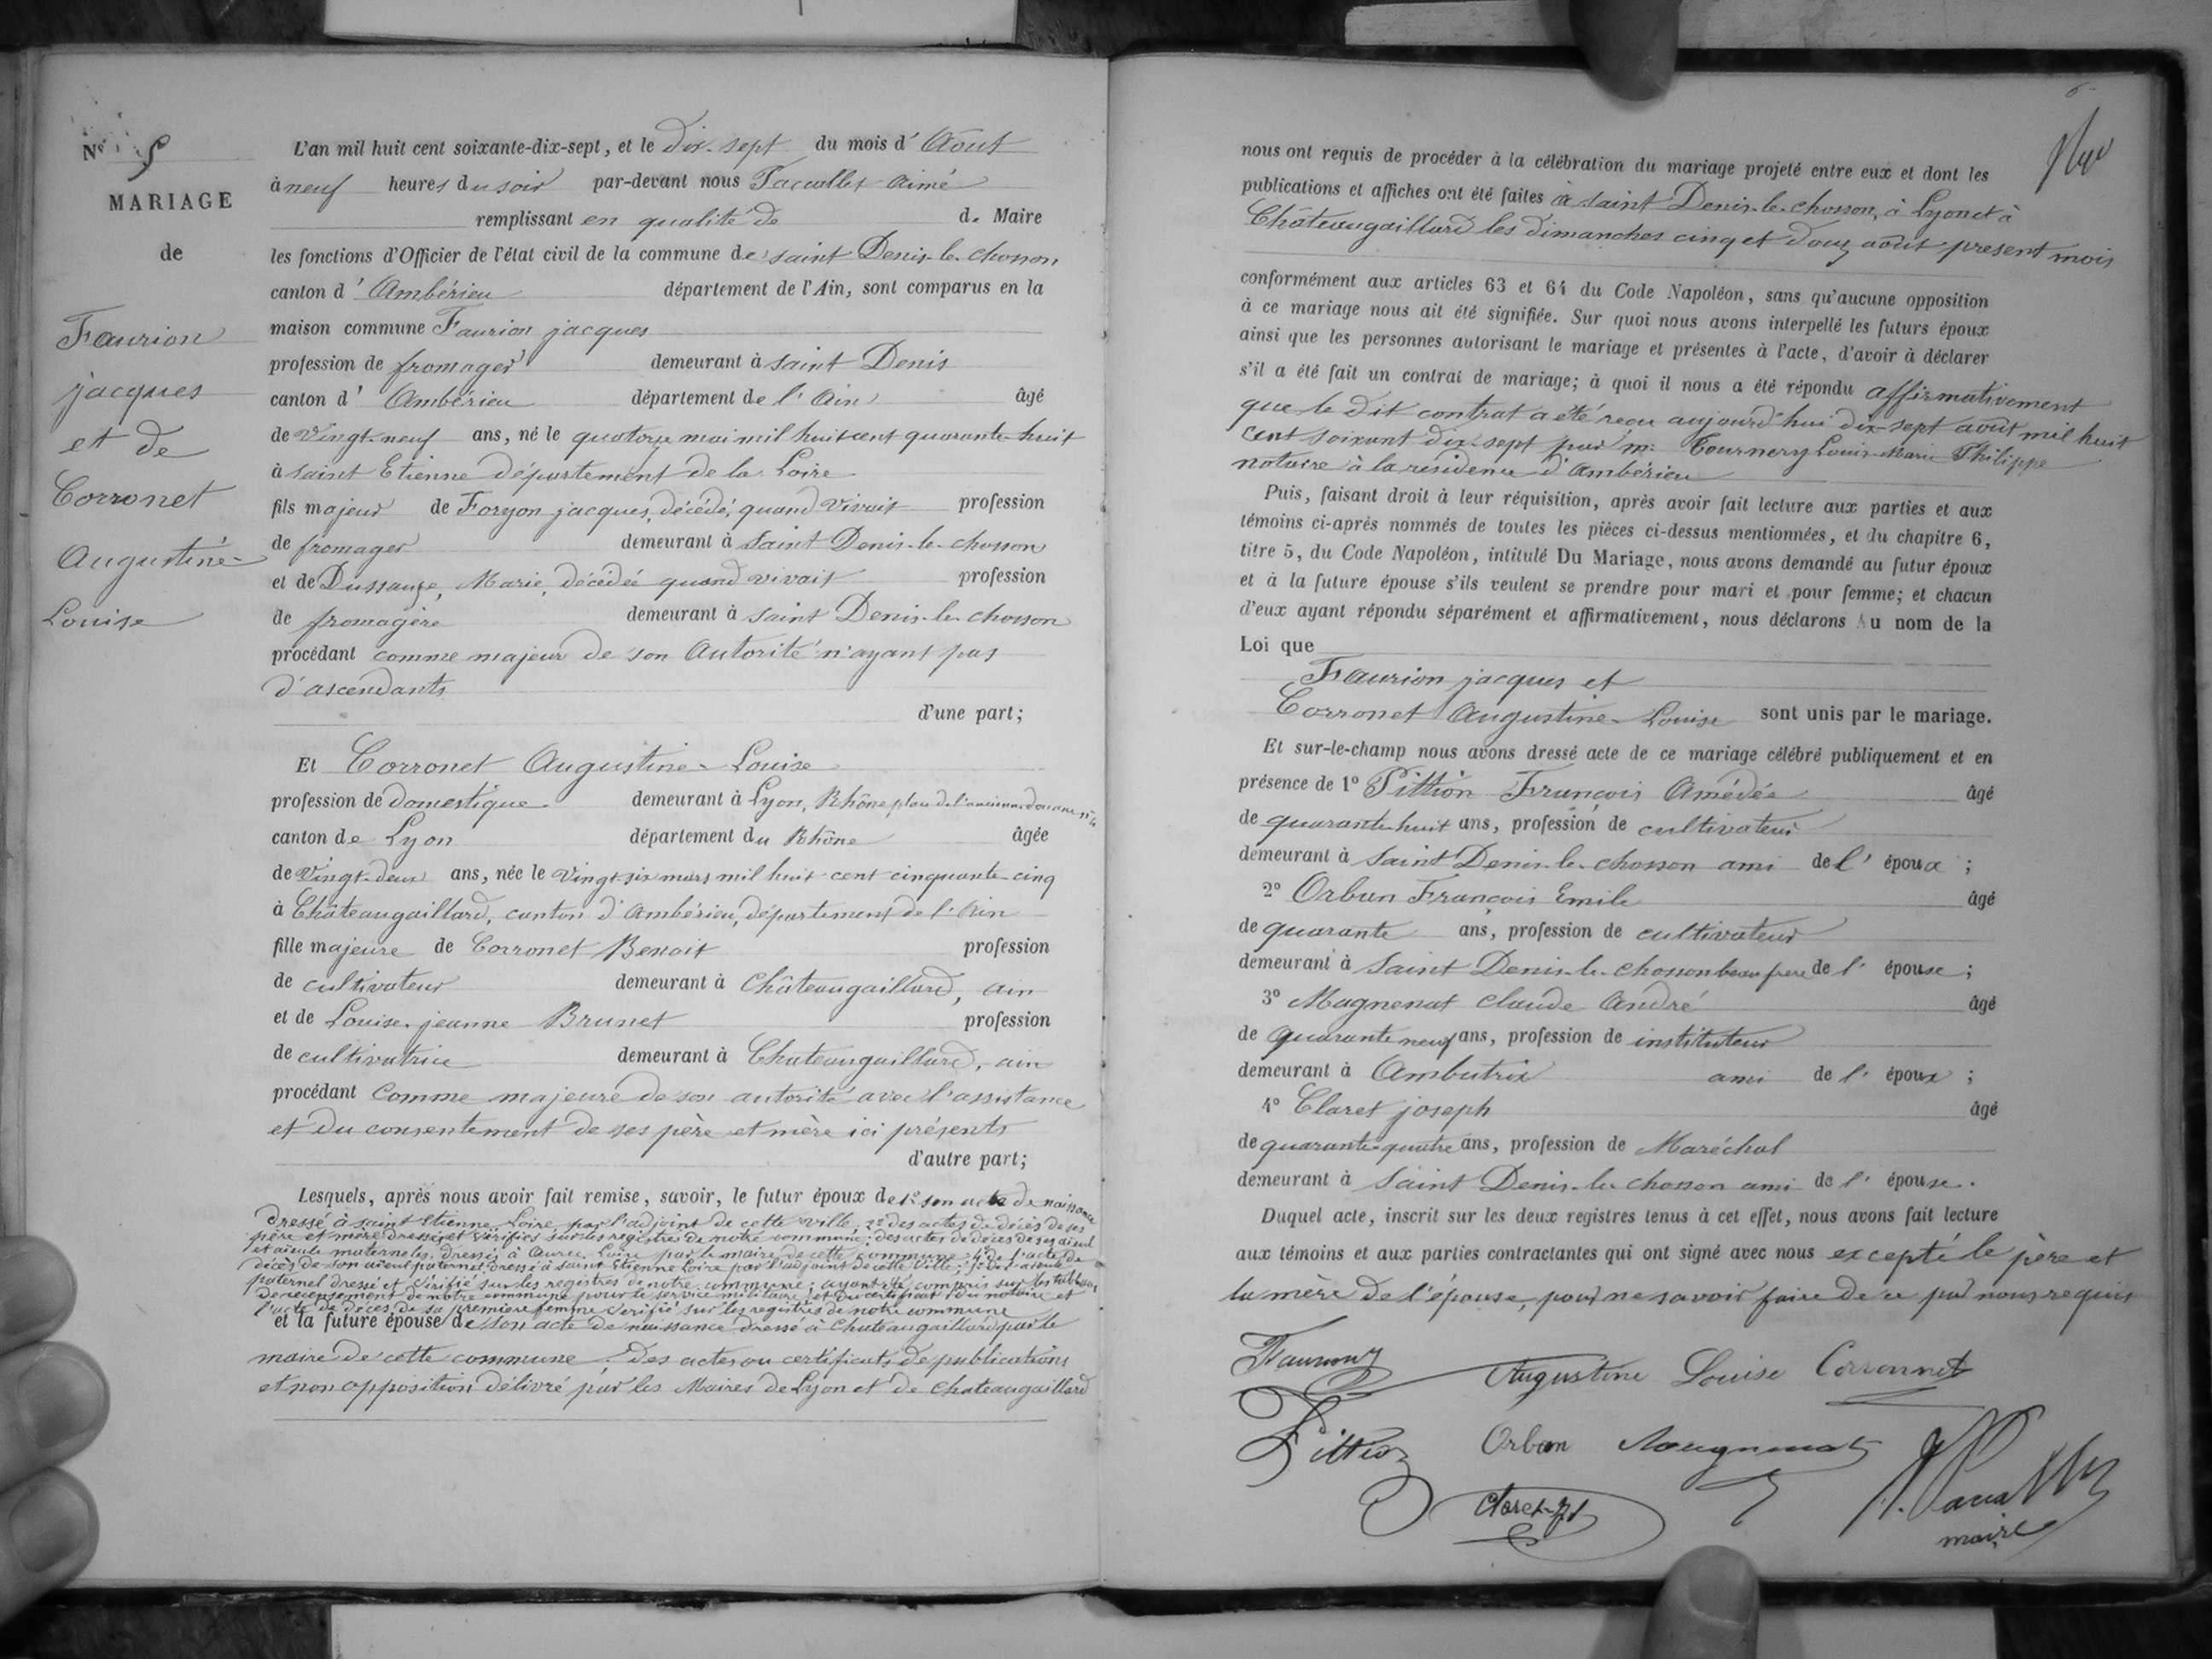 N° 5
MARIAGE
de
Faurion
jacques
et de
Corronet
Augustine-
Louise
L'an mil huit cent soixante-dix-sept, et le dix-sept du mois d' Aout
à neuf heures du soir par-devant nous Aimé
remplissant en qualité de de Maire
les fonctions d'Officier de l'état civil de la commune de saint Denis-le-chosson
canton d' Ambérieu département de l'Ain, sont comparus en la
maison commune Faurion jacques
profession de fromager demeurant à saint Denis
canton d' Ambérieu département de l' Ain âgé
de Vingt-neuf ans, né le quatorze mai mil huit cent quarante-huit
à saint Etienne département de la Loire
fils majeur de Foryon jacques, décédé, quand vivait profession
de fromager demeurant à Saint Denis-le-chosson
et de Dussauze, Marie, décédée quand vivait profession
de fromagère demeurant à saint Denis-le-chosson
procédant comme majeur de son Autorité n'ayant pas
d'ascendants
d'une part;
Et Corronet Augustine-Louise
profession de domestique demeurant à Lyon, Rhône place de l'ancienne douane n°
canton de Lyon département du Rhône âgée
de Vingt-deux ans, née le Vingt-six mars mil huit cent cinquante-cinq
à Châteaugaillard, canton d'Ambérieu, département de l'Ain
fille majeure de Corronet Benoit profession
de cultivateur demeurant à Châteaugaillard, ain
et de Louise-jeanne Brunet profession
de cultivatrice demeurant à Chateaugaillard, ain
procédant comme majeure de son autorité avec l'assistance
et du consentement de ses père et mère ici présents
d'autre part;
Lesquels, après nous avoir fait remise, savoir, le futur époux de 1° son acte de naissance
dressé à saint Etienne Loire par l'adjoint de cette ville; 2° des actes de décès de ses
père et mère dressés et vérifiés sur les registres de notre commune; des actes de décès de ses aïeul
et aieule maternels, dressés à Aurec, Loire par le maire de cette commune; 4° de l'acte de
décès de son aïeul paternel dressé à saint Etienne Loire par l'adjoint de cette ville; 5° de l'aieule
paternel dressé et vérifié sur les registres de notre commune; ayant été compris sur les tableaux
de recensement de notre commune pour le service militaire; et du certificat du notaire et
l'acte de décès de sa premiere femme verifié sur les registres de notre commune
et la future épouse de son acte de naissance dressé à Chateaugaillard par le
maire de cette commune; des actes ou certificats de publications
et non opposition délivré par les Maires de Lyon et de chateaugaillard
6
nous ont requis de procéder à la célébration du mariage projeté entre eux et dont les
publications et affiches ont été faites à saint Denis-le-chosson, à Lyon et à
Châteaugaillard les dimanches cinq et douze août present mois
conformément aux articles 63 et 64 du Code Napoléon, sans qu'aucune opposition
à ce mariage nous ait été signifiée. Sur quoi nous avons interpellé les futurs époux
ainsi que les personnes autorisant le mariage et présentes à l'acte, d'avoir à déclarer
s'il a été fait un contrat de mariage; à quoi il nous a été répondu affirmativement
que le dit contrat a été reçu aujourd'hui dix-sept août mil huit
cent soixant dix-sept par m. Tournery Louis-Marie Philippe
notaire à la résidence d'Ambérieu
Puis, faisant droit à leur réquisition, après avoir fait lecture aux parties et aux
témoins ci-après nommés de toutes les pièces ci-dessus mentionnées, et du chapitre 6,
titre 5, du Code Napoléon, intitulé Du Mariage, nous avons demandé au futur époux
et à la future épouse s'ils veulent se prendre pour mari et pour femme; et chacun
d'eux ayant répondu séparément et affirmativement, nous déclarons Au nom de la
Loi que
Faurion jacques et
Corronet Augustine-Louise sont unis par le mariage.
Et sur-le-champ nous avons dressé acte de ce mariage célébré publiquement et en
présence de 1° Pittion François Amédée âgé
de quarante-huit ans, profession de cultivateur
demeurant à Saint Denis-le-chosson ami de l' époux ;
2° Orban François Emile âgé
de quarante ans, profession de cultivateur
demeurant à Saint Denis-le-chosson beau frere de l' épouse ;
3° Magnenat claude André âgé
de quarante neuf ans, profession de instituteur
demeurant à Ambutrix ami de l' époux ;
4° Claret joseph âgé
de quarante-quatre ans, profession de Maréchal
demeurant à Saint Denis-le-chosson ami de l' épouse.
Duquel acte, inscrit sur les deux registres tenus à cet effet, nous avons fait lecture
aux témoins et aux parties contractantes qui ont signé avec nous excepté le père et
la mère de l'épouse, pour ne savoir faire de ce par nous requis
Faurion
Augustine Louise Corronnet
Pittion Orban Magnenat
Claret
maire